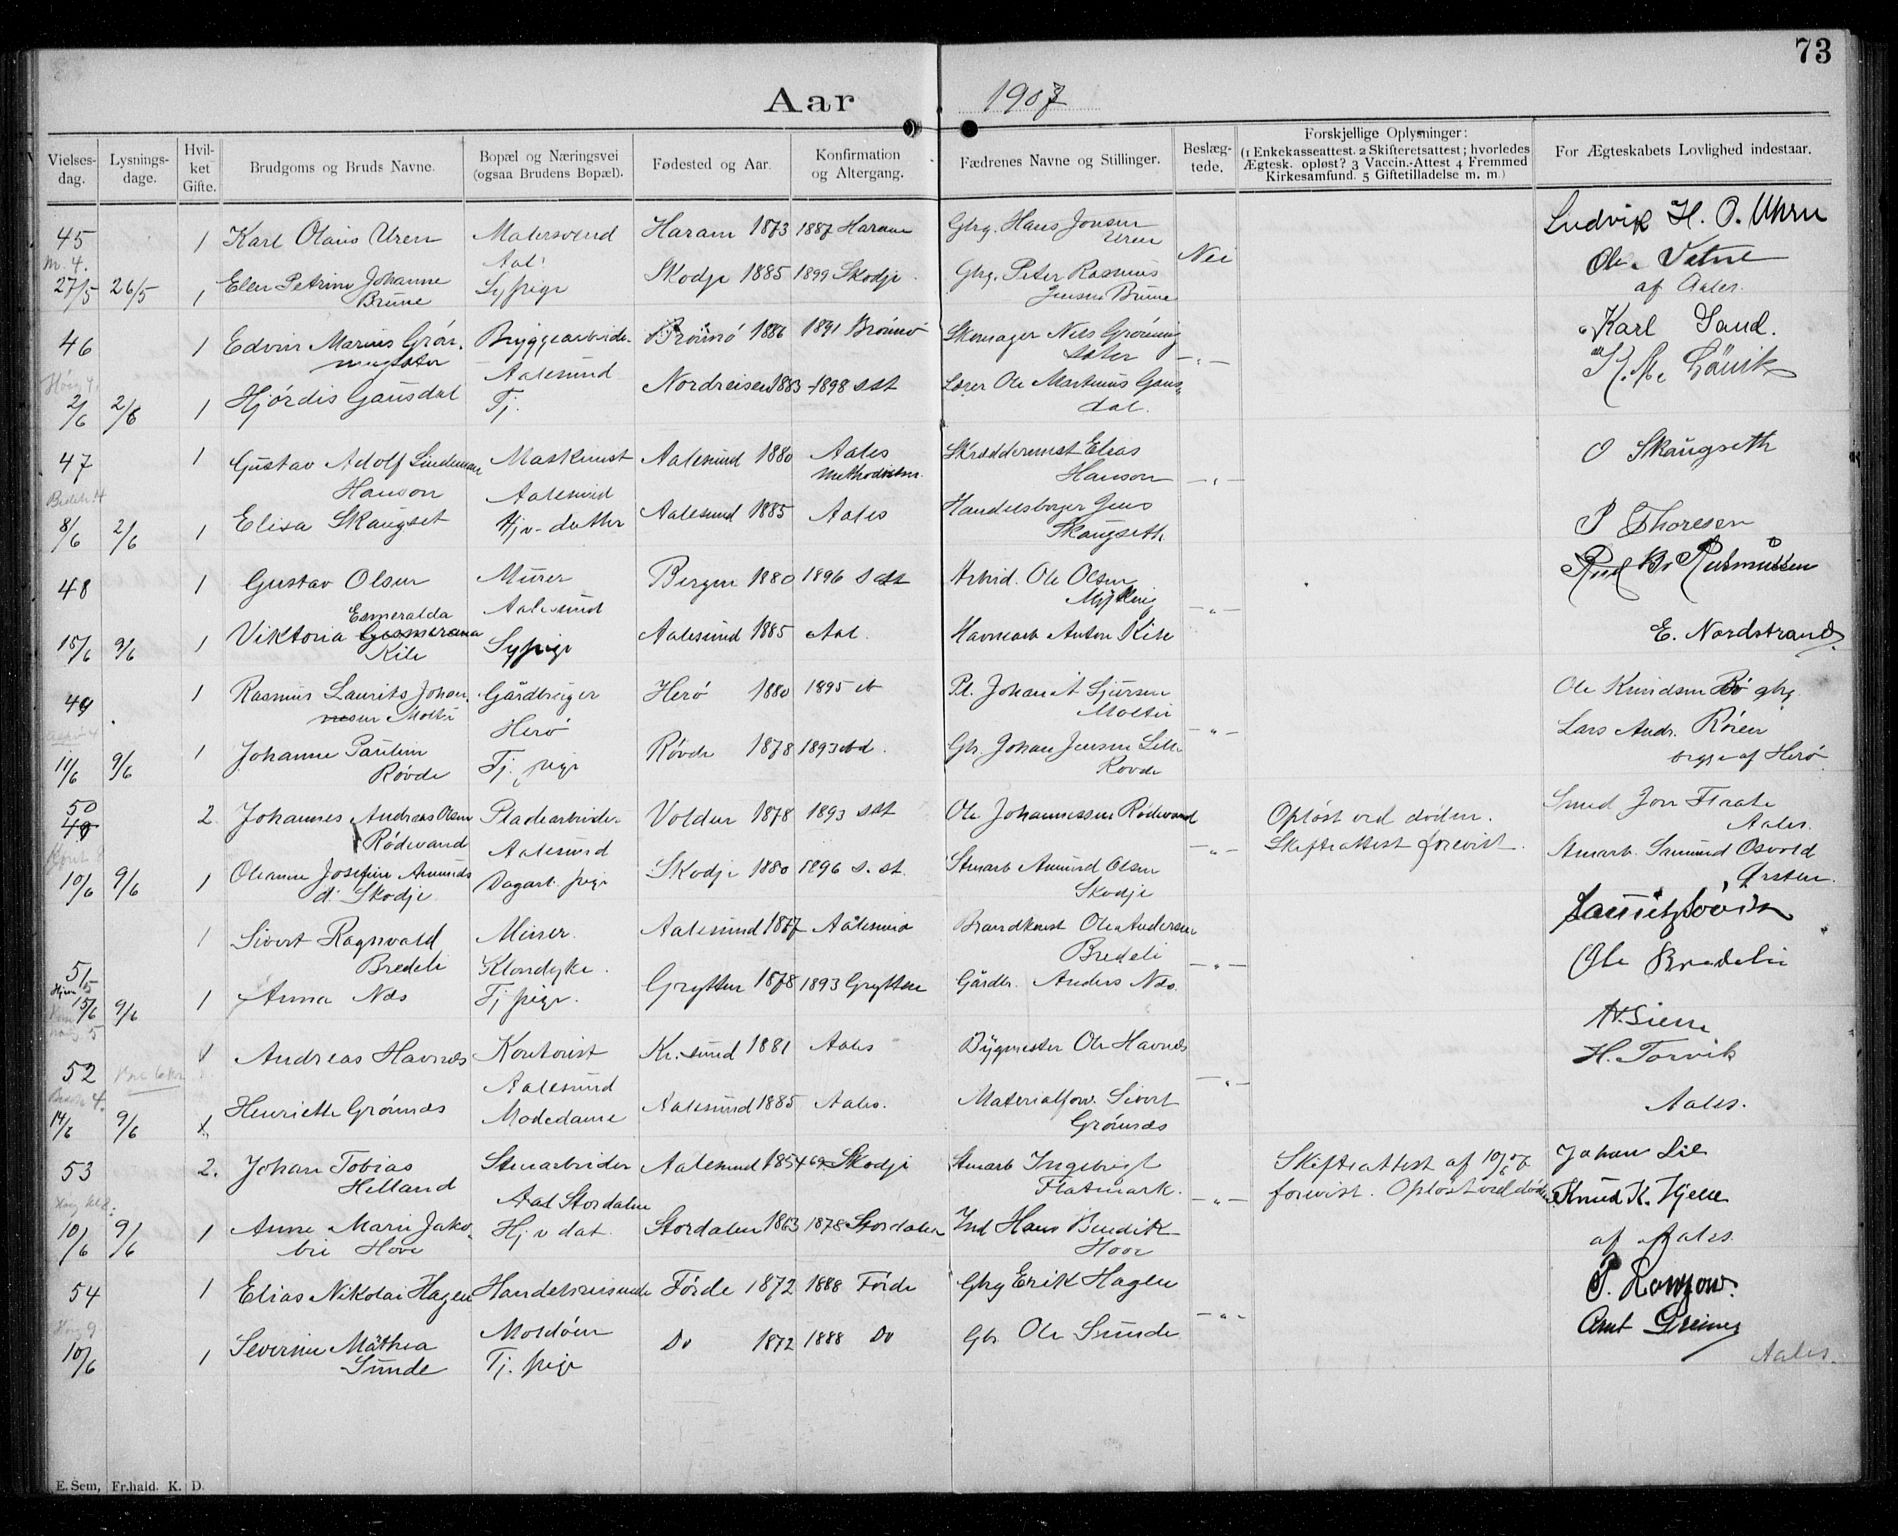 73
Aar 1907
Vielses-dag. Lysnings-dage. Hvil-ket Gifte. Brudgoms og Bruds Navne. Bopæl og Næringsvei (ogsaa Brudens Bopæl). Fødested og Aar. Konfirmation og Altergang. Fædrenes Navne og Stillinger. Beslæg-tede. Forskjellige Oplysninger: (1 Enkekasseattest. 2 Skifteretsattest; hvorledes Ægtesk. opløst? 3 Vaccin.-Attest 4 Fremmed Kirkesamfund. 5 Giftetilladelse m. m.) For Ægteskabets Lovlighed indestaar.
45 1 Karl Olaus Uren Malersvend Haram 1873 1887 Haram Gbrg. Hans Jonsen Ludvik H. O. Uhrn
Uren
m. 4. Aal. Nei Ole Vetne
27/5 26/5 1 Elen Petrine Johanne Sypige Skodje 1885 1899 Skodje Gbrg. Peter Rasmus af Aales.
Brune Jensen Brune
46 1 Edvin Marius Grön- Bryggearbeider Brönnö 1886 1891 Brönnö Skomager Nils Gröning Karl Sand.
ningsæter Aalesund sæter -"-
2/6 2/6 1 Hjördis Gausdal Tj. Nordreisen 1883 1898 sst Lærer Ole Martinus Gaus-
dal.
47 1 Gustav Adolf Lindeman Maskinist Aalesund 1880 Aales Skræddermst Elias O Skaugseth
Hanson Aalesund Methodisten Hanson -"-
8/6 2/6 1 Elisa Skaugset Hjv-datter Aalesund 1885 Aales Handelsborger Jens P Thoresen
Skaugseth
48 1 Gustav Olsen Murer Bergen 1880 1896 sst Arbeid. Ole Olsen
Esmeralda Aalesund Mykling -"-
15/6 9/6 1 Viktoria Kile Sypige Aalesund 1885 Aal. Havnearb Anton Kile E. Nordstrand
49 1 Rasmus Laurits Johan- Gårdbruger Herö 1880 1895 Pl. Johan A Sjursen Ole Knudsen Bö gbrg.
nesen Moltu Herö Moltu -"- Lars Andr. Rören
11/6 9/6 1 Johanne Pauline Tj. pige Rövde 1878 1893 Gbr. Johan Jensen begge af Herö
Rövde Rovde
50 2. Johannes Andreas Olsen Pladearbeider Volden 1878 1893 sst Ole Johannessen Rödevand Opløst ved døden. Smed Jon Flaate
49 Rödevand Aalesund -"- Skifteattest forevist. Aales.
10/6 9/6 1 Oleanne Josefine Amunds Dagarb. pige Skodje 1880 1896 s. st. Stenarb Amund Olsen
d. Skodje Skodje Örsten.
1 Sivert Ragnvald Miner. Aalesund 1877 Aalesund Ole Andersen
Bredeli Klondyke. Bredeli -"- Ole Bredeli
51
15/6 9/6 1 Anna Næs Tj pige. Grytten 1878 1893 Grytten Gårdbr. Anders Næs.
52 1 Andreas Havnæs Kontorist Kr. sund 1881 Aales Bygmester Ole Havnæs H. Torvik
Aalesund -"-
14/6 9/6 1 Henriette Grönnæs Modedame Aalesund 1885 Aales. Materialforv. Sivert Aales.
Grönnæs
53 2. Johan Tobias Stenarbeider Aalesund 1854 69 Skodje Stenarb Ingebrigt Skifteattest af 10/6 07 Johan Lie
Helland Aal Stordalen Flatmark. -"- forevist. Opløst ved døden Knud K. Hjelle
10/6 9/6 1 Anne Marie Jako- Hj v dat. Stordalen 1863 1878 Stordalen Ind Hans Bendik af Aales.
bie Hove Hove
54 1 Elias Nikolai Hagen Handelsreisende Förde 1872 1888 Förde Gbrg Erik Hagen
Moldöen -"-
10/6 1 Severine Mathea Tj. pige Do 1872 1888 Do Gbr Ole Sunde
Sunde Aales.
E. Sem, Fr.hald. K. D.